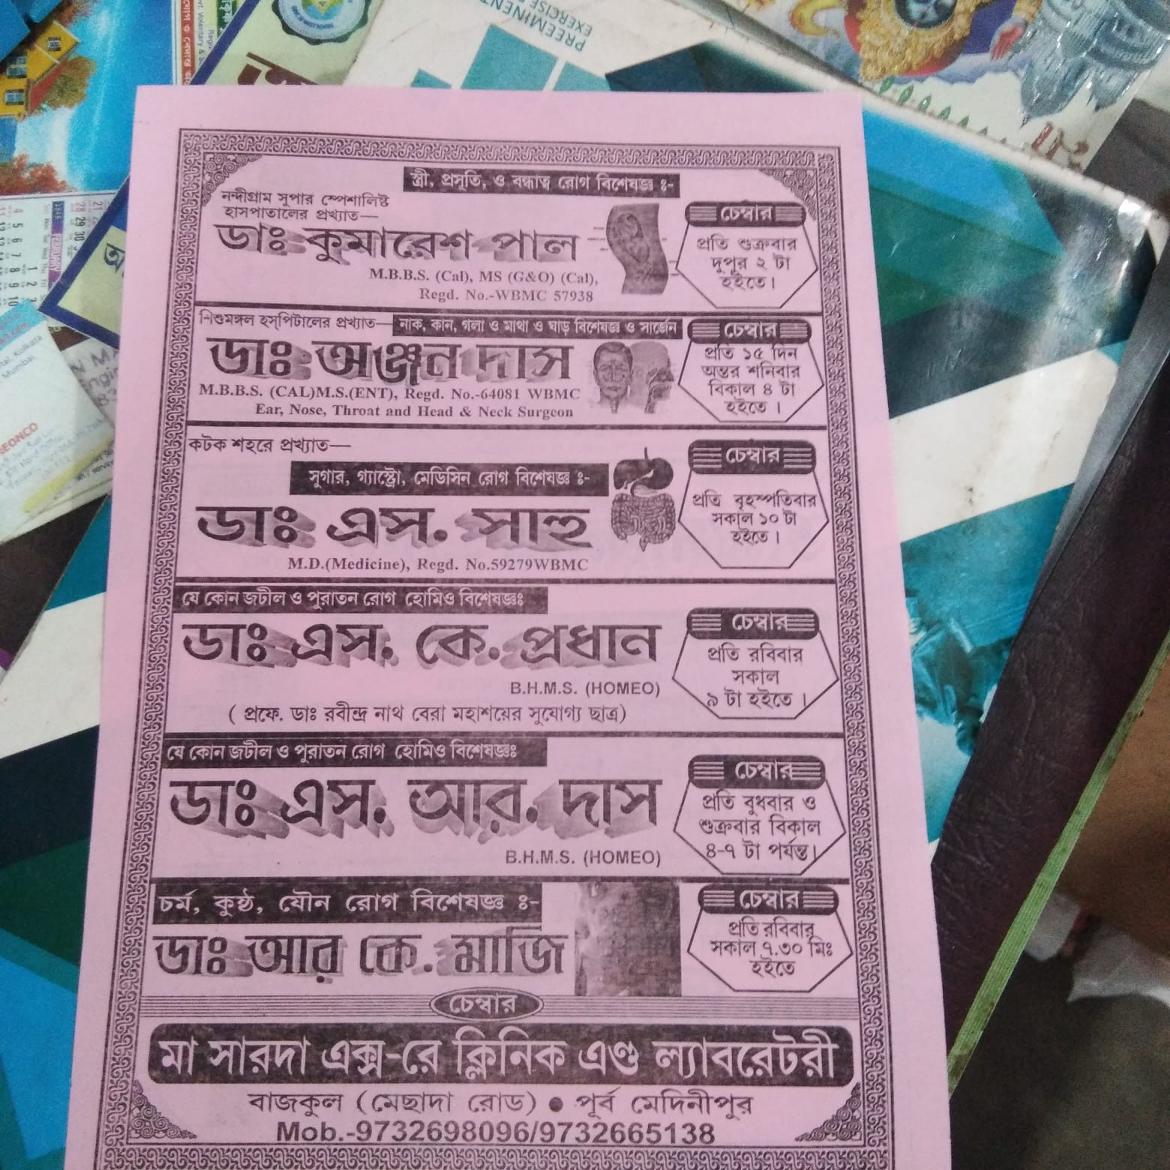 PREEMINENT
স্ত্রী, প্রসূতি, ও বন্ধাত্ব রোগ বিশেষজ্ঞ ঃ-
নন্দীগ্রাম সুপার স্পেশালিষ্ট
হাসপাতালের প্রখ্যাত—
ডাঃ কুমারেশ পাল
M.B.B.S. (Cal), MS (G&O) (Cal),
Regd. No.-WBMC 57938
চেম্বার
প্রতি শুক্রবার
দুপুর ২ টা
হইতে।
শিশুমঙ্গল হস্পিটালের প্রখ্যাত— নাক, কান, গলা ও মাথা ও ঘাড় বিশেষজ্ঞ ও সার্জেন
ডাঃ অঞ্জন দাস
M.B.B.S. (CAL)M.S.(ENT), Regd. No.-64081 WBMC
Ear, Nose, Throat and Head & Neck Surgeon
চেম্বার
প্রতি ১৫ দিন
অন্তর শনিবার
বিকাল ৪ টা
হইতে ।
কটক শহরে প্রখ্যাত—
সুগার, গ্যাস্ট্রো, মেডিসিন রোগ বিশেষজ্ঞ ঃ-
ডাঃ এস. সাহু
M.D.(Medicine), Regd. No.59279WBMC
চেম্বার
প্রতি বৃহস্পতিবার
সকাল ১০ টা
হইতে ।
যে কোন জটীল ও পুরাতন রোগ হোমিও বিশেষজ্ঞঃ
ডাঃ এস. কে. প্রধান
B.H.M.S. (HOMEO)
( প্রফে. ডাঃ রবীন্দ্র নাথ বেরা মহাশয়ের সুযোগ্য ছাত্র)
চেম্বার
প্রতি রবিবার
সকাল
৯ টা হইতে ।
যে কোন জটীল ও পুরাতন রোগ হোমিও বিশেষজ্ঞঃ
ডাঃ এস. আর. দাস
B.H.M.S. (HOMEO)
চেম্বার
প্রতি বুধবার ও
শুক্রবার বিকাল
৪-৭ টা পর্যন্ত।
চর্ম, কুষ্ঠ, যৌন রোগ বিশেষজ্ঞ ঃ-
ডাঃ আর কে. মাজি
চেম্বার
প্রতি রবিবার
সকাল ৭.৩০ মিঃ
হইতে
চেম্বার
মা সারদা এক্স-রে ক্লিনিক এণ্ড ল্যাবরেটরী
বাজকুল (মেছাদা রোড) ● পূর্ব মেদিনীপুর
Mob.-9732698096/9732665138